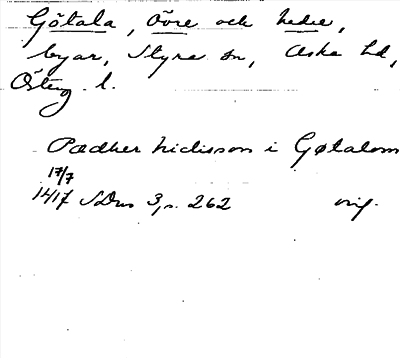 Götala, övre och nedre,
byar, Styra sn, Aska hd,
Österg. l.
Pædher niclisson i Gøtalom
17/7
1417 SDns 3, s. 262 orig.